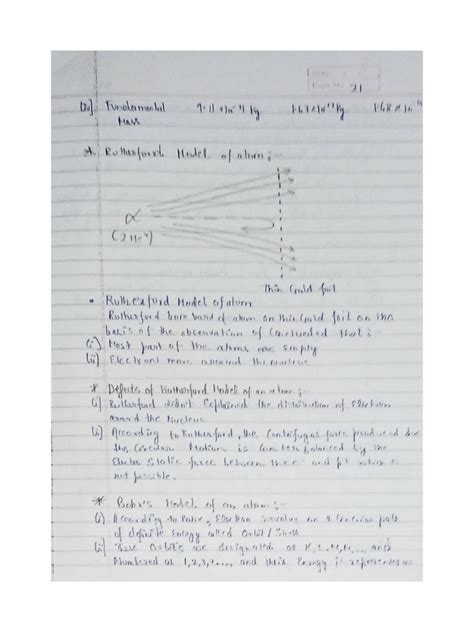 21
(iv) Fundamental 9.11 × 10⁻³¹ Kg 1.67 × 10⁻²⁷ Kg 1.68 × 10
Mass
* Rutherford Model of atom :-
α
(2He⁴)
thin Gold foil
• Rutherford Model of atom
Rutherford of atom on thin Gold foil on the
basis of the observation of Concluded that :-
(i) Most part of the atoms are empty
(ii) Electrons move around the nucleus
* Defects of Rutherford Model of an atom :-
(i) Rutherford didn't Explained the distribution of Electron
around the Nucleus
(ii) According to Rutherford, the Centrifugal force produced due
the Circular Motion is Counter balanced by the
Electro Static force between the e⁻ and p⁺ which is
not possible.
* Bohr's Model of an atom :-
(i) According to Electron revolve on a Circular path
of definite Energy called Orbit / Shell
(ii) These Orbits are designated as K, L, M, N, ... and
Numbered as 1,2,3,4..., and this Energy is represented as